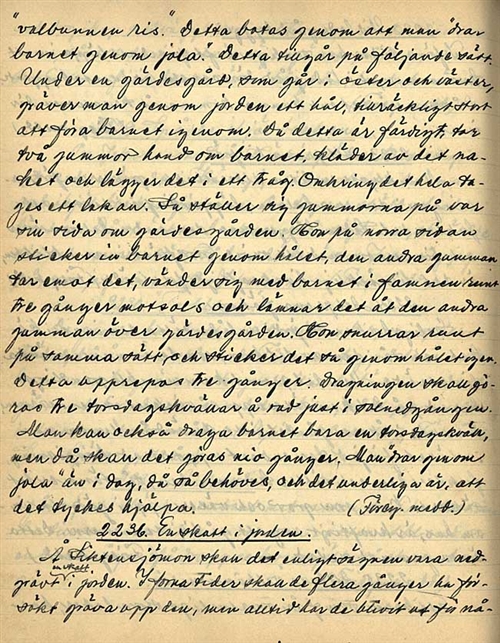 "valbunnen ris." Detta botas genom att man "drar
barnet genom jola." Detta tillgår på följande sätt.
Under en gärdesgård, som går i öster och väster,
gräver man genom jorden ett hål, tillräckligt stort
att föra barnet igenom. Då detta är färdigt, tar
två gummor hand om barnet, kläder av det na-
ket och lägger det i ett tråg. Omkring det hela ta-
ges ett lakan. Så ställer sig gummorna på var
sin sida om gärdesgården. Hon på norra sidan
sticker in barnet genom hålet, den andra gumman
tar emot det, vänder sig med barnet i famnen runt
tre gånger motsols och lämnar det åt den andra
gumman över gärdesgården. Hon snurrar runt
på samma sätt, och sticker det så genom hålet igen.
Detta upprepas tre gånger. Dragningen skall gö-
ras tre torsdagskvällar å rad just i solnedgången.
Man kan också draga barnet bara en torsdagskväll,
men då skall det göras nio gånger. Man "drar genom
jola" än i dag, då så behöves, och det underliga är, att
det tyckes hjälpa. (Föreg. medd.)
2236. En skatt i jorden.
Å jömon skall det enligt sägnen vara ned-
en skatt
grävt i jorden. I forna tider skall de flera gånger ha för-
sökt gräva upp den, men alltid har de blivit